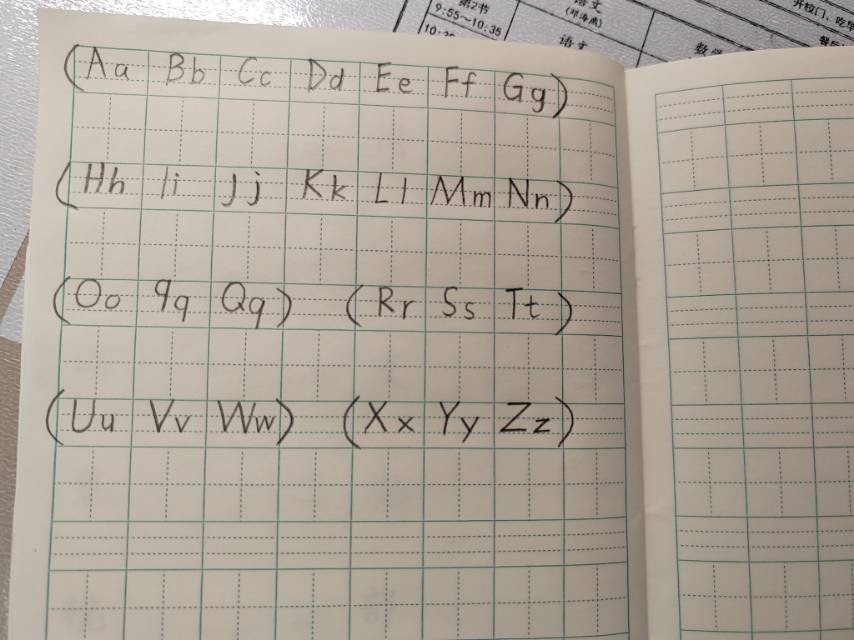 第2节
9:55~10:35
语文
语文
数学
开校门、吃早
(Aa Bb Cc Dd Ee Ff Gg)
(Hh Ii Jj Kk Ll Mm Nn)
(Oo 9q Qq) (Rr Ss Tt)
(Uu Vv Ww) (Xx Yy Zz)